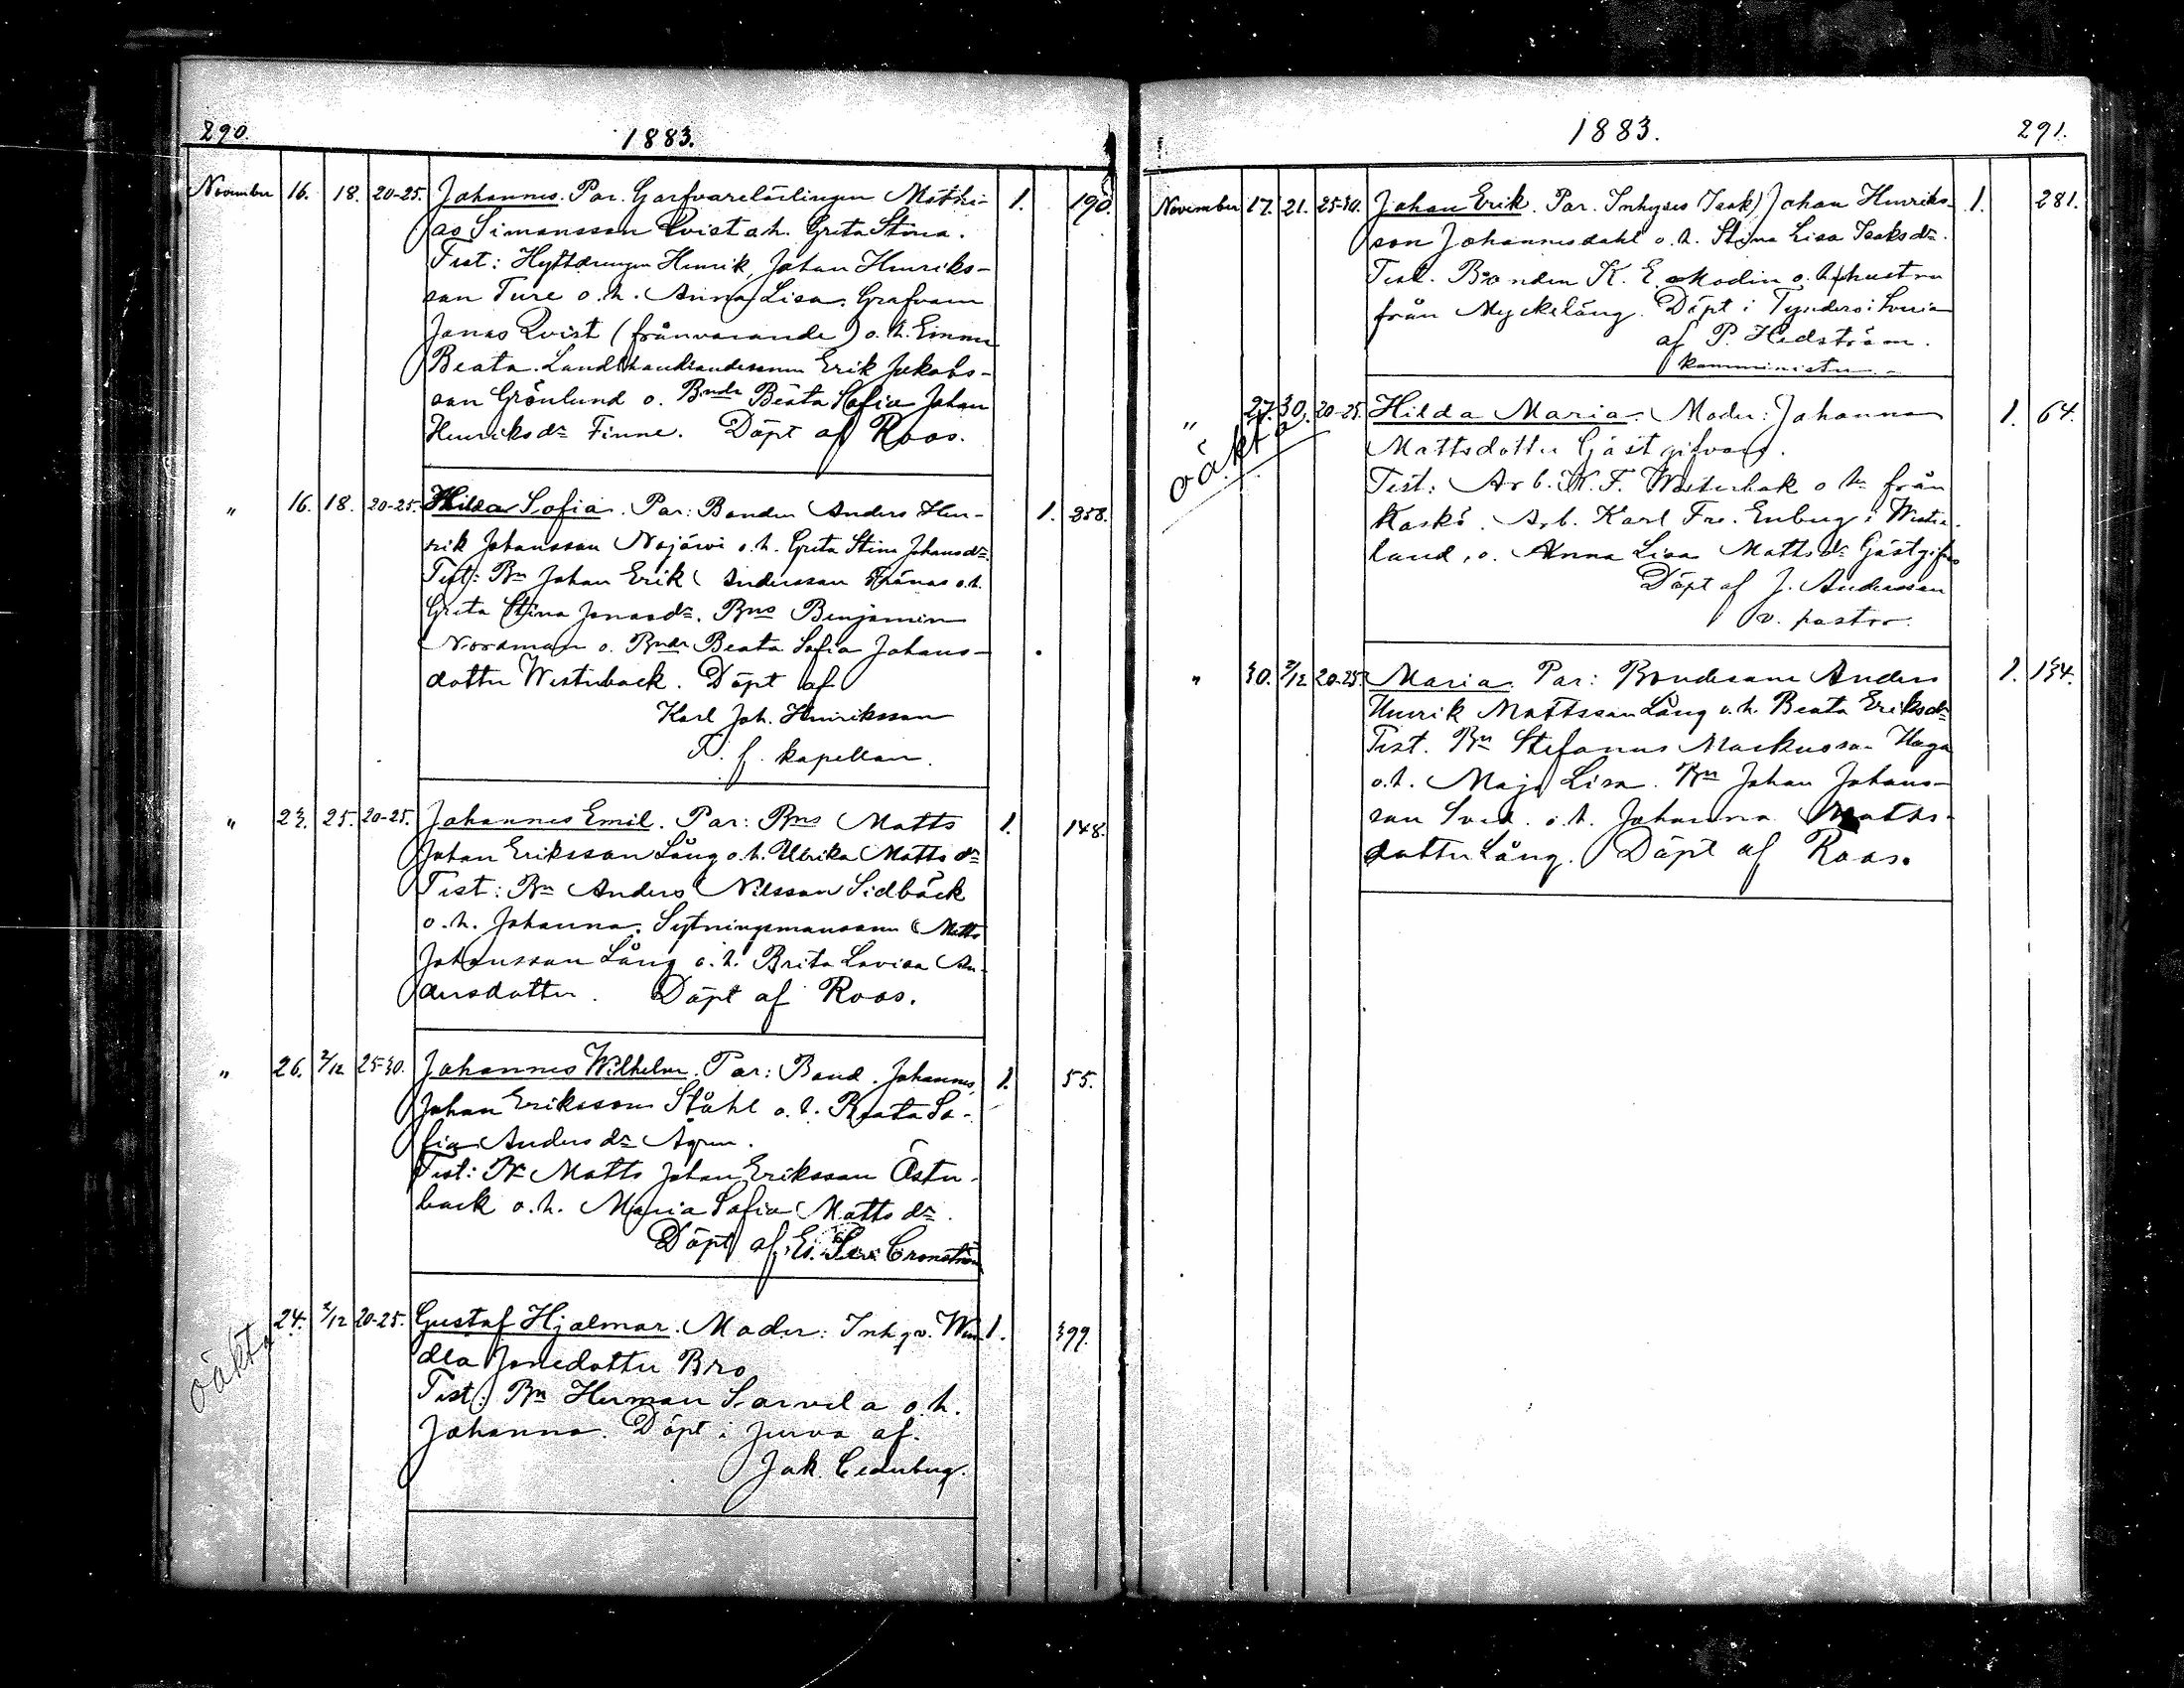 290.
1883.
November 16. 18. 20-25. Johannes. Par. Garfvarelärlingen Mathi- 1. 190.
as Simonsson Qvist o.h. Greta Stina.
Test: Henrik, Johan Henriks-
son Ture o.h. Anna Lisa. Grafvaren
Jonas Qvist (frånvarande) o.h. Emma
Beata. Landthandlandesonen Erik Jakobs-
son Grönlund o. Bndr Beata Sofia Johan
Henriksdr Finne. Döpt af Roos.
" 16. 18. 20-25. Hilda Sofia. Par: Bonden Anders Hen- 1. 258.
rik Johansson Nojärvi o.h. Greta Stina Johansdr.
Test: Bn Johan Erik Andersson o.h.
Greta Stina Jonasdr. Bns Benjamin
Nordman o. Bndr Beata Sofia Johans-
dotter Westerback. Döpt af
Karl Joh. Henriksson
T. f. kapellan.
" 23. 25. 20-25. Johannes Emil. Par: Bns Matts 1. 148.
Johan Eriksson Lång o.h. Ulrika Mattsdr
Test: Bn Anders Nilsson Sidbäck
o.h. Johanna. Sytningsmansson Matts
Johansson Lång o.h. Brita Lovisa An-
dersdotter. Döpt af Roos.
" 26. 2/12 25-30. Johannes Wilhelm. Par: Bond. Johannes 1. 55.
Johan Eriksson Ståhl o.h. Beata So-
fia Andersdr Ågren.
Test: Bn Matts Johan Eriksson Öster-
back o.h. Maria Sofia Mattsdr.
Döpt af Cronström
oäkta 24. 2/12 20-25. Gustaf Hjalmar. Moder: Inh. qv. Wen- 1. 399.
dla Jonedotter Bro
Test: Bn Herman Sarvela o.h.
Johanna. Döpt i Jurva af.
Jak. Cederberg.
1883.
291.
November 17. 21. 25-30. Johan Erik. Par. Inhyses Isak Johan Henriks- 1. 281.
son Johannesdahl o.h. Stina Lisa Isaksdr.
Test. Bonden K. E. Modin o. hustru
från Myckeläng. Döpt i Tynderö i Sverige
af P. Hedström.
komminister
" 27. 30. 20-25. Hilda Maria. Moder: Johanna 1. 64.
oäkta
Mattsdotter Gästgifvars.
Test: Arb. K. F. Westerback o hu från
Kaskö. Arb. Karl Fr. Enberg i
land, o. Anna Lisa Mattsdr Gästgifvars
Döpt af J. Andersson
v. pastor.
" 30. 2/12 20-25. Maria. Par: Bondeson Anders 1. 134.
Henrik Mattsson Lång o.h. Beata Eriksdr
Test. Bn Stefanus Markusson Haga
o.h. Maja Lisa. Bn Johan Johans-
son Sved. o.h. Johanna Matts-
dotter Lång. Döpt af Roos.